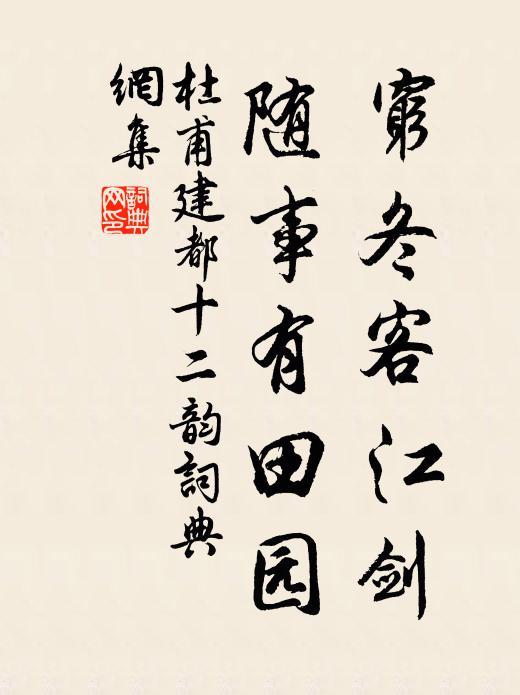 窮冬客江剑
随事有田园
杜甫建都十二韵詞典
網集
詞典
网印